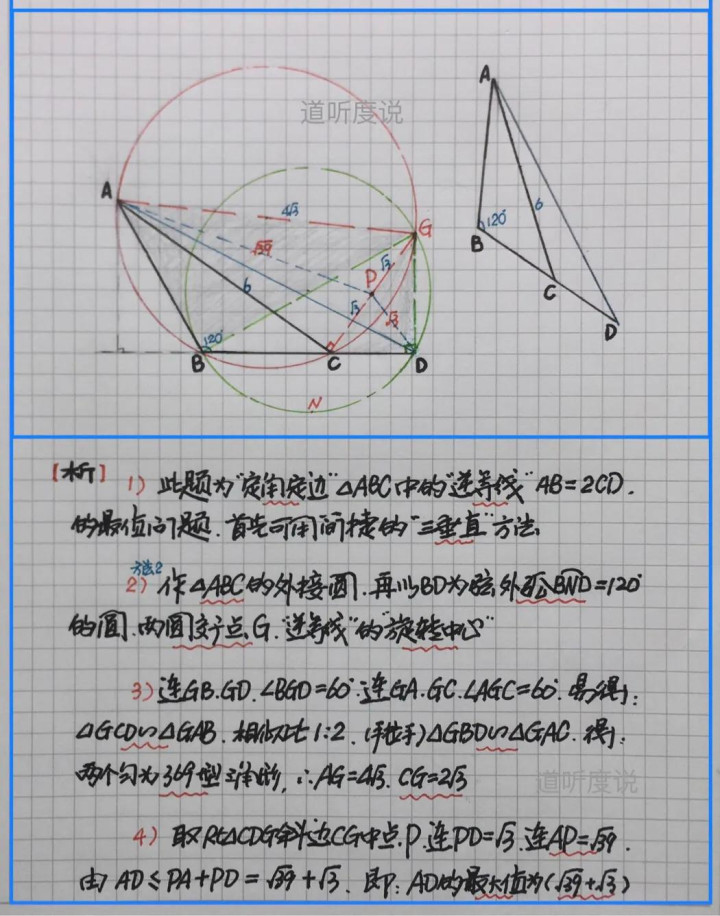 道听度说
A
4√3
G
√39
P
√3
6
√3
√3
120°
B
C
D
N
A
120°
6
B
C
D
[析] 1) 此题为"定角定边"△ABC中的"逆等线"AB=2CD.
的最值问题.首先可用间捷的"三垂直"方法.
方法2
2) 作△ABC的外接圆.再以BD为弦外作弧BND=120°
的圆.两圆交于点G."逆等线"的"旋转中心"
3) 连GB.GD.∠BGD=60°.连GA.GC.∠AGC=60°.易得:
△GCD∽△GAB.相似比1:2.(手拉手)△GBD∽△GAC.得:
两个匀为369型三角形,∴AG=4√3.CG=2√3
道听度说
4) 取Rt△CDG斜边CG中点.P.连PD=√3.连AP=√39.
由AD≤PA+PD=√39+√3.即:AD的最大值为(√39+√3)